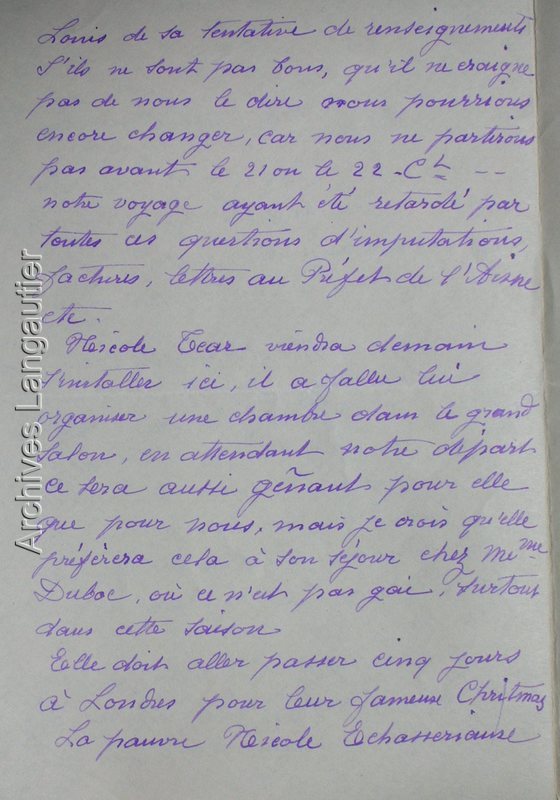 Louis de sa tentative de renseignements
S'ils ne sont pas bons, qu'il ne craigne
pas de nous le dire nous pourrions
encore changer, car nous ne partirons
pas avant le 21 ou le 22 - Ct --
notre voyage ayant été retardé par
toutes ces questions d'imputations,
factures, lettres au Préfet de l'Aisne
etc.
Nicole viendra demain
s'installer ici, il a fallu lui
organiser une chambre dans le grand
salon, en attendant notre départ
ce sera aussi gênant pour elle
que pour nous, mais je crois qu'elle
préfèrera cela à son séjour chez Mme
Duboc, où ce n'est pas gai, surtout
dans cette saison
Elle doit aller passer cinq jours
à Londres pour leur fameux Christmas
La pauvre Nicole Echasseriause
Archives Langautier